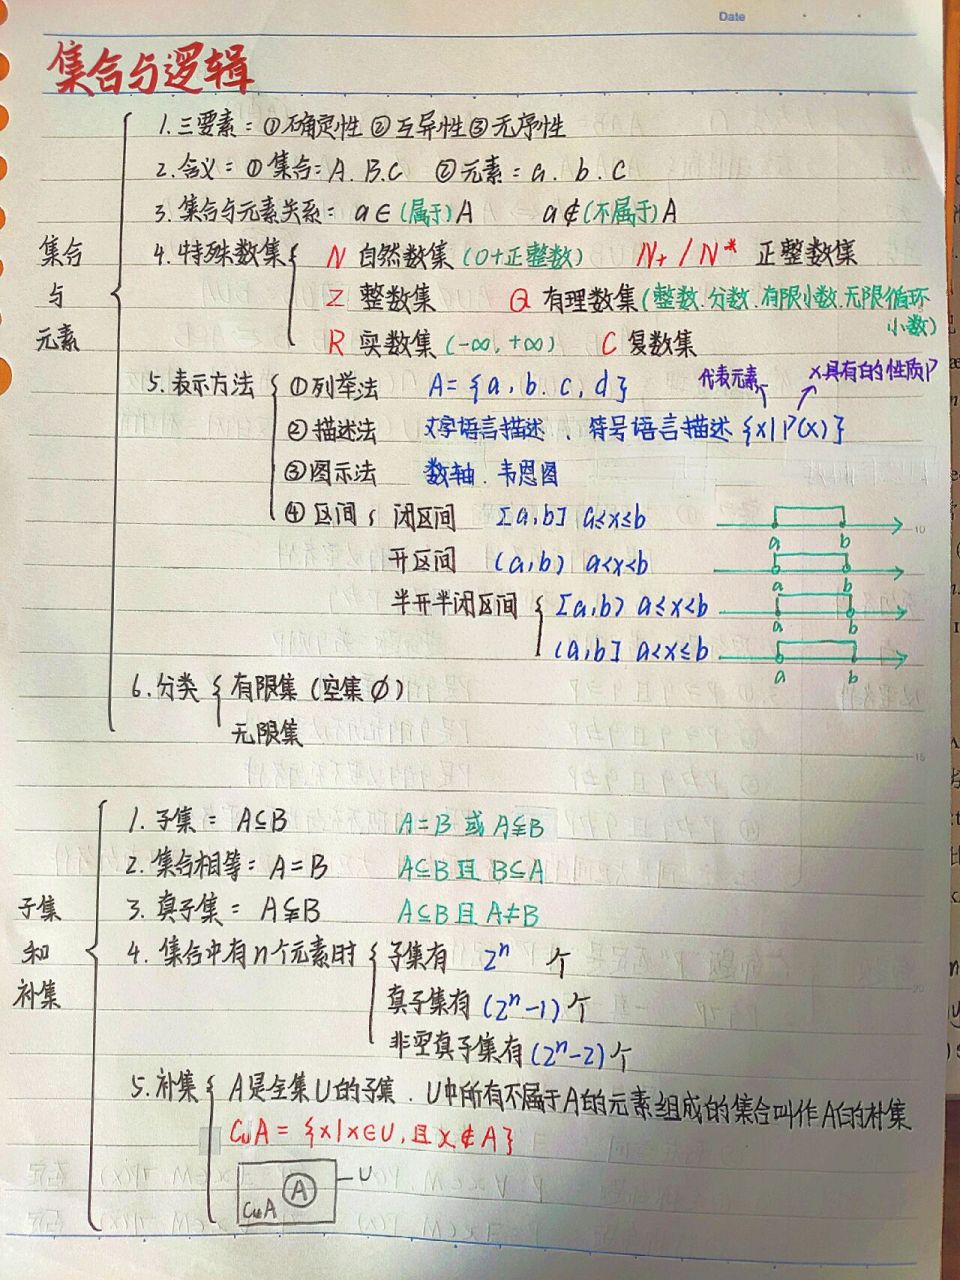 Date
集合与逻辑
集合
与
元素
1.三要素：①确定性 ②互异性 ③无序性
2.含义：①集合：A.B.C ②元素：a.b.c
3.集合与元素关系：a∈(属于)A a∉(不属于)A
4.特殊数集
N 自然数集(0+正整数) N+ / N* 正整数集
Z 整数集 Q 有理数集(整数.分数.有限小数.无限循环
小数)
R 实数集(-∞,+∞) C 复数集
5.表示方法
①列举法 A={a,b.c,d}
代表元素 x具有的性质P
②描述法 文字语言描述、符号语言描述{x|P(x)}
③图示法 数轴.韦恩图
④区间 闭区间 [a,b] a≤x≤b
a b
开区间 (a,b) a<x<b
a b
半开半闭区间 [a,b) a≤x<b
a b
(a,b] a<x≤b
a b
6.分类 有限集(空集∅)
无限集
10
15
20
子集
和
补集
1.子集：A⊆B A=B 或 A⫋B
2.集合相等：A=B A⊆B且B⊆A
3.真子集：A⫋B A⊆B且A≠B
4.集合中有n个元素时
子集有 2ⁿ 个
真子集有(2ⁿ-1)个
非空真子集有(2ⁿ-2)个
5.补集 A是全集U的子集.U中所有不属于A的元素组成的集合叫作A的补集
CuA={x|x∈U,且x∉A}
A U
CuA